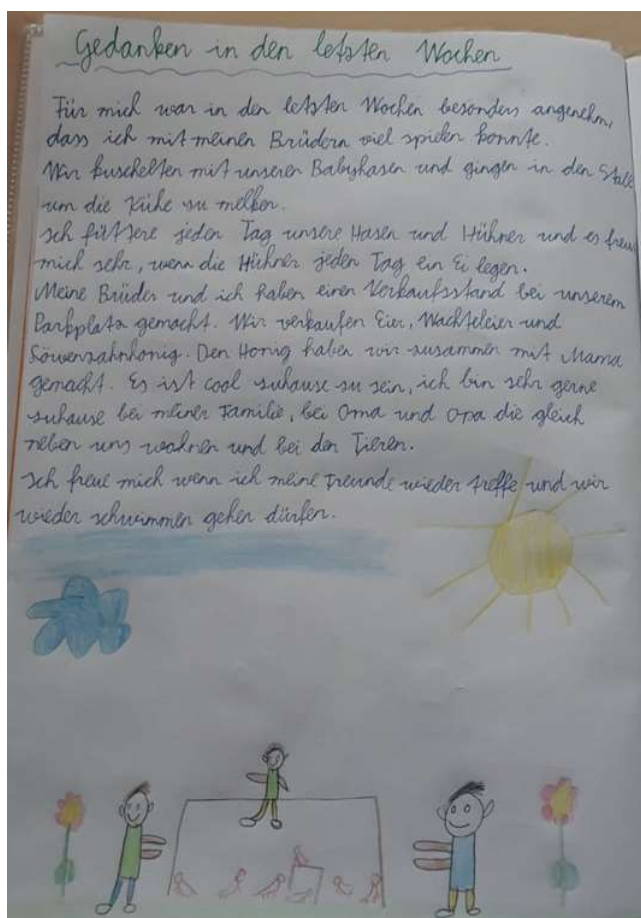 Gedanken in den letzten Wochen
Für mich war in den letzten Wochen besonders angenehm,
dass ich mit meinen Brüdern viel spielen konnte.
Wir kuschelten mit unseren Babyhasen und gingen in den Stall
um die Kühe zu melken.
Ich füttere jeden Tag unsere Hasen und Hühner und es freut
mich sehr, wenn die Hühner jeden Tag ein Ei legen.
Meine Brüder und ich haben einen Verkaufsstand bei unserem
Parkplatz gemacht. Wir verkaufen Eier, Wachteleier und
Löwenzahnhonig. Den Honig haben wir zusammen mit Mama
gemacht. Es ist cool zuhause zu sein, ich bin sehr gerne
zuhause bei meiner Familie, bei Oma und Opa die gleich
neben uns wohnen und bei den Tieren.
Ich freue mich wenn ich meine Freunde wieder treffe und wir
wieder schwimmen gehen dürfen.